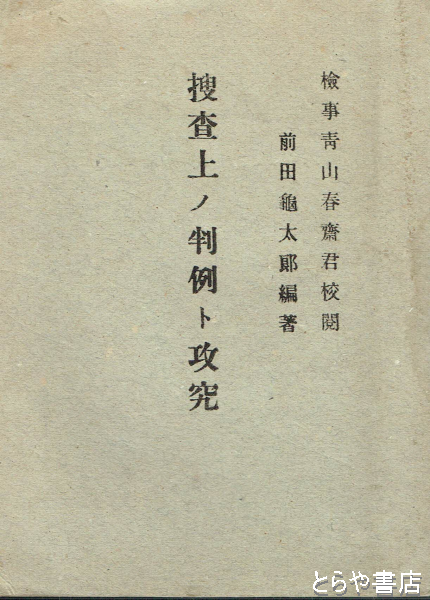 檢事靑山春齋君校閱
前田龜太郞編著
搜查上ノ判例ト攻究
とらや書店